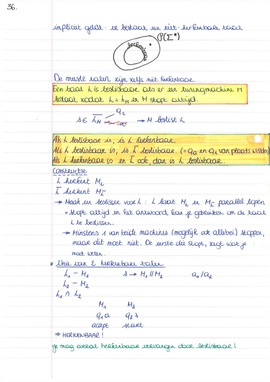 36.
impliciet geldt: er bestaan er niet-herkenbare talen
P(Σ*)
De meeste talen zijn zelfs niet herkenbaar.
Een taal L is beslisbaar als er een turingmachine M
bestaat zodat L = L_M en M stopt altijd.
→ M beslist L
Als L beslisbaar is, is L herkenbaar.
Als L beslisbaar is, is L̅ beslisbaar.
Als L herkenbaar is en L̅ ook, dan is L beslisbaar.
Constructie
L herkent M_L
L̅ herkent M_L̅
→ Maak een beslisser voor L: laat M_L en M_L̅ parallel lopen
stopt altijd en het antwoord kan je gebruiken om de taal
te beslissen.
→ Minstens 1 van beide machines (mogelijk ook allebei) stoppen,
maar dit moet niet. De eerste die stopt, zegt wat je
moet weten.
• Unie van 2 herkenbare talen
L₁ - M₁
L₂ - M₂
s → M₁ // M₂
L₁ ∩ L₂
M₁ M₂
→ HERKENBAAR!
je mag overal herkenbaar vervangen door beslisbaar!